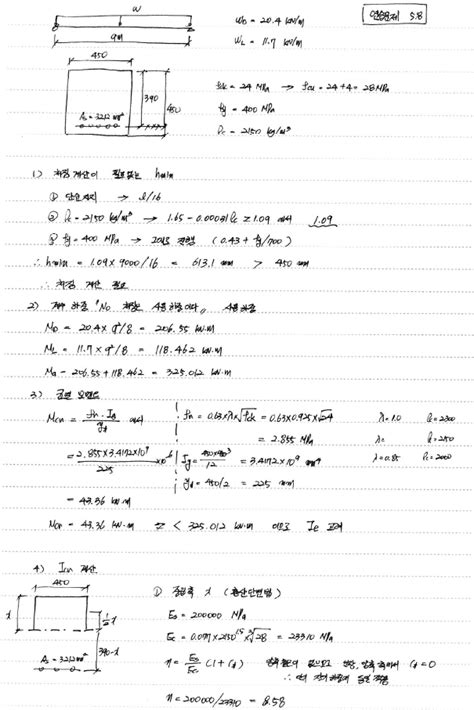 연습문제 5.8
w
9m
W_D = 20.4 kN/m
W_L = 11.7 kN/m
450
390
450
As = 3212 mm²
fck = 24 MPa → fcu = 24+4 = 28 MPa
fy = 400 MPa
ρc = 2150 kg/m³
1) 처짐 계산이 필요없는 hmin
① 단순지지 → l/16
② ρc = 2150 kg/m³ → 1.65 - 0.00031ρc ≥ 1.09 에서 1.09
③ fy = 400 MPa → 그대로 (0.43 + fy/700)
∴ hmin = 1.09 × 9000/16 = 613.1 mm > 450 mm
∴ 처짐 계산 필요
2) 계수 하중 "No 처짐은 사용하중이다" 사용하중
M_D = 20.4 × 9²/8 = 206.55 kN.m
M_L = 11.7 × 9²/8 = 118.462 kN.m
Ma = 206.55 + 118.462 = 325.012 kN.m
3) 균열 모멘트
Mcr = fr · Ig / yt 에서
fr = 0.63×λ×√fck = 0.63×0.925×√24
λ=1.0 ρc=2300
= 2.855 MPa
λ=
= 2.855×3.4172×10⁹ / 225 ×10⁻⁶
Ig = 450×450³ / 12 = 3.4172×10⁹ mm⁴
λ=0.85 ρc=2000
yt = 450/2 = 225 mm
= 43.36 kN.m
Mcr = 43.36 kN.m < 325.012 kN.m 이므로 Ie 고려
4) Icr 계산
450
x
½x
390-x
As = 3212mm²
① 중립축 x (환산단면법)
Es = 200000 MPa
Ec = 0.077×2150^1.5 ∛28 = 23310 MPa
n = Es/Ec (1+Cd) Cd = 0
n = 200000/23310 = 8.58